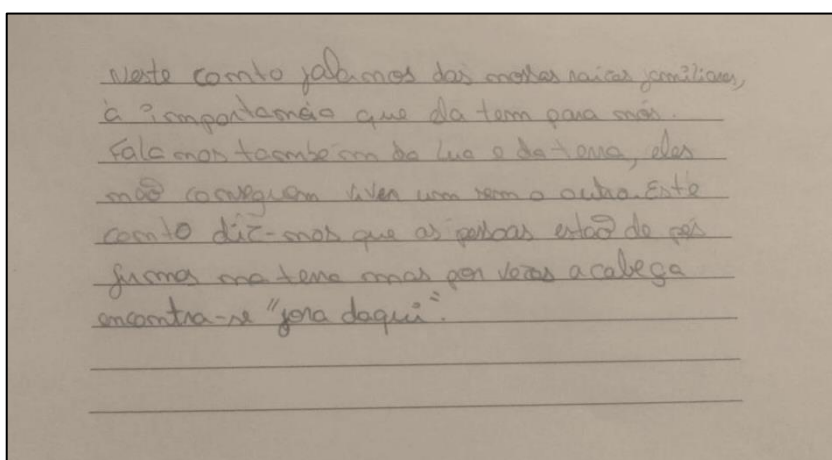 Neste conto falamos das nossas raices familiares,
a importancia que ela tem para nós.
Fala-nos tambem da lua e da terra, eles
não conseguem viver um sem o outro. Este
conto diz-nos que as pessoas estão de pés
firmes na terra mas por vezes a cabeça
encontra-se "fora daqui".